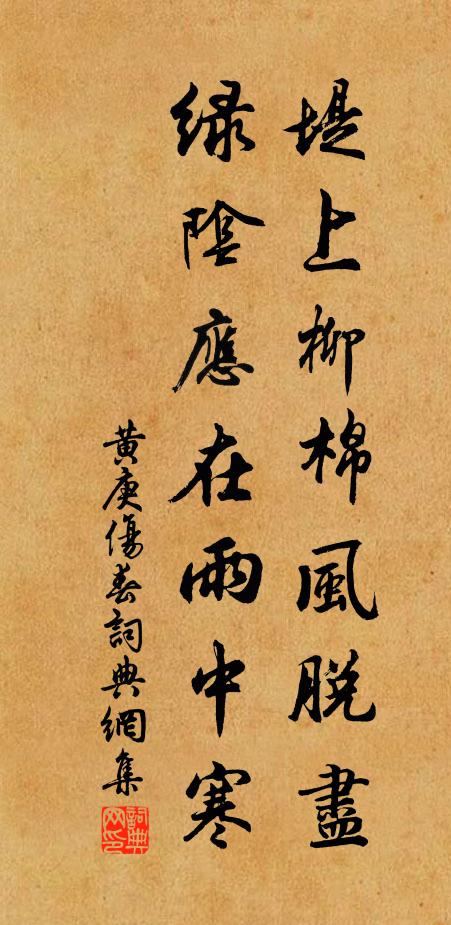 堤上柳棉風脱盡
緑陰應在雨中寒
黄庚傷春詞典網集
詞典網印